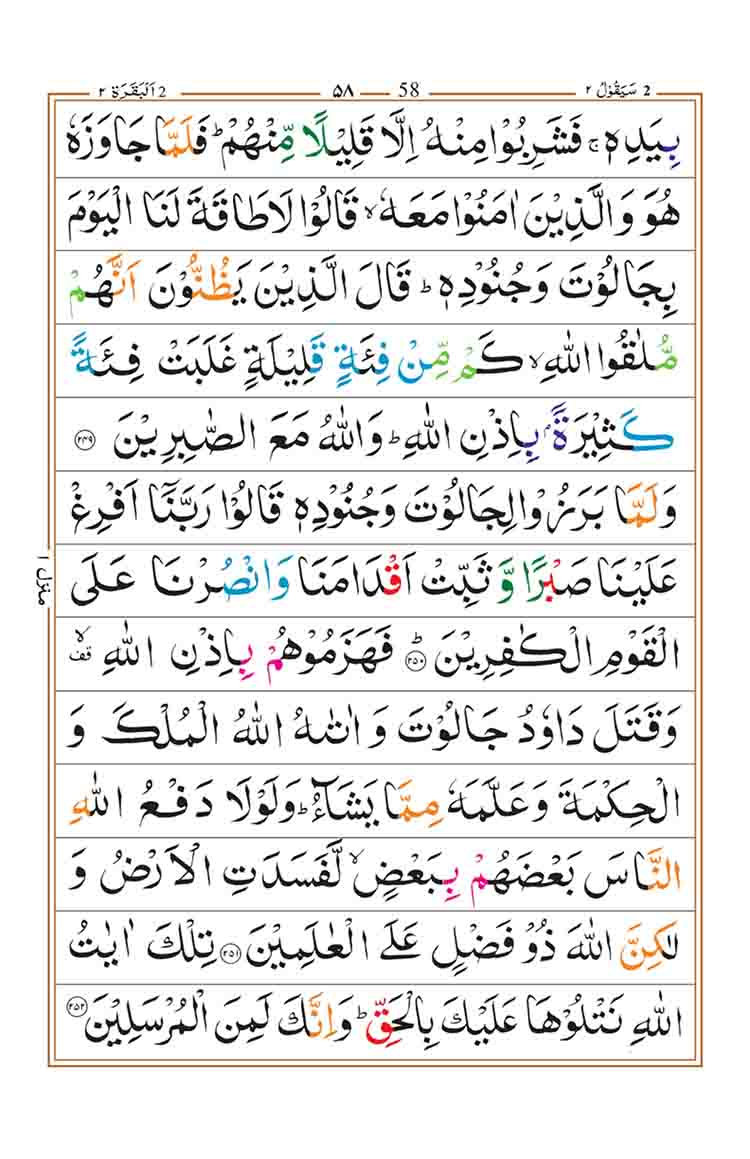 2 سَيَقُوْلُ ٢ 58 ٥٨ 2 اَلْبَقَرَة ٢
بِيَدِهٖ ۚ فَشَرِبُوْا مِنْهُ اِلَّا قَلِيْلًا مِّنْهُمْ ؕ فَلَمَّا جَاوَزَهٗ
هُوَ وَالَّذِيْنَ اٰمَنُوْا مَعَهٗ ۙ قَالُوْا لَا طَاقَةَ لَنَا الْيَوْمَ
بِجَالُوْتَ وَجُنُوْدِهٖ ؕ قَالَ الَّذِيْنَ يَظُنُّوْنَ اَنَّهُمْ
مُّلٰقُوا اللّٰهِ ۙ كَمْ مِّنْ فِئَةٍ قَلِيْلَةٍ غَلَبَتْ فِئَةً
كَثِيْرَةًۢ بِاِذْنِ اللّٰهِ ؕ وَاللّٰهُ مَعَ الصّٰبِرِيْنَ ٢٤٩
وَلَمَّا بَرَزُوْا لِجَالُوْتَ وَجُنُوْدِهٖ قَالُوْا رَبَّنَآ اَفْرِغْ
عَلَيْنَا صَبْرًا وَّ ثَبِّتْ اَقْدَامَنَا وَانْصُرْنَا عَلَى
الْقَوْمِ الْكٰفِرِيْنَ ؕ ٢٥٠ فَهَزَمُوْهُمْ بِاِذْنِ اللّٰهِ ۙ قف
وَقَتَلَ دَاوٗدُ جَالُوْتَ وَ اٰتٰىهُ اللّٰهُ الْمُلْكَ وَ
الْحِكْمَةَ وَعَلَّمَهٗ مِمَّا يَشَآءُ ؕ وَلَوْلَا دَفْعُ اللّٰهِ
النَّاسَ بَعْضَهُمْ بِبَعْضٍ ۙ لَّفَسَدَتِ الْاَرْضُ وَ
لٰكِنَّ اللّٰهَ ذُوْ فَضْلٍ عَلَى الْعٰلَمِيْنَ ٢٥١ تِلْكَ اٰيٰتُ
اللّٰهِ نَتْلُوْهَا عَلَيْكَ بِالْحَقِّ ؕ وَاِنَّكَ لَمِنَ الْمُرْسَلِيْنَ ٢٥٢
منزل ١